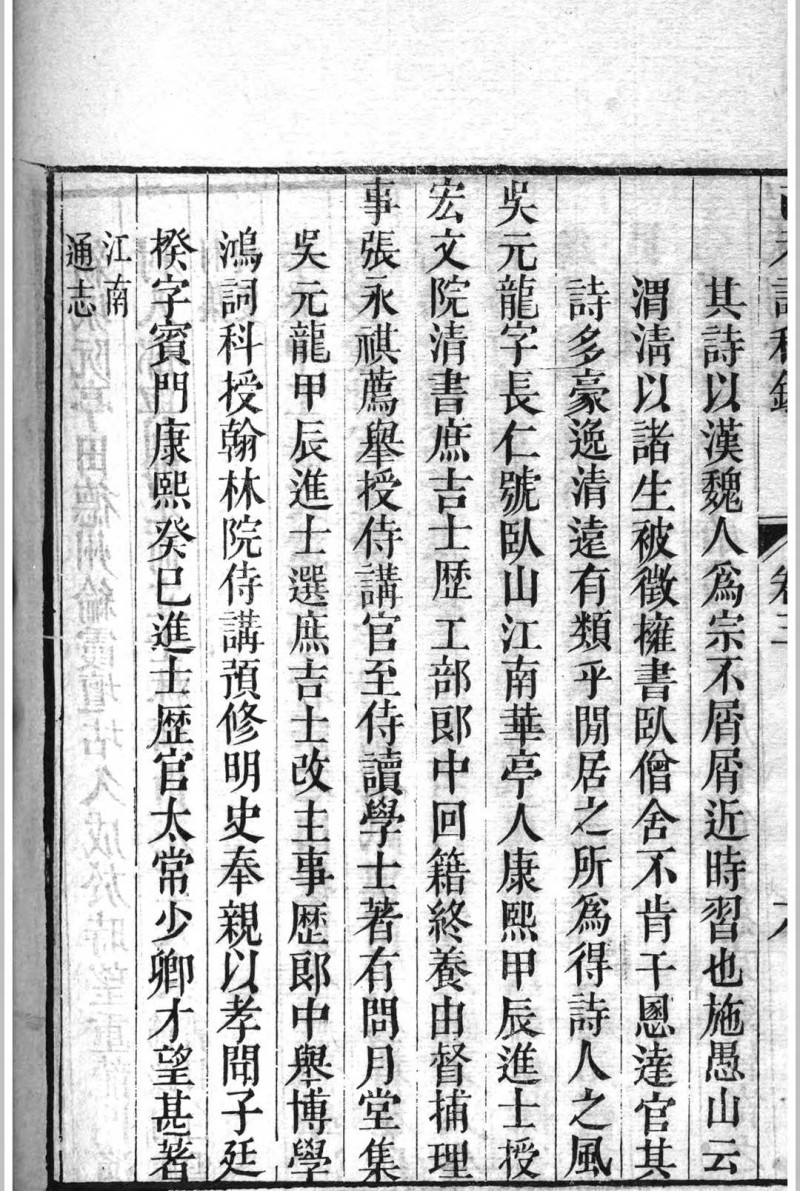 己未詞科錄 卷三
其詩以漢魏人爲宗不屑屑近時習也施愚山云
渭淸以諸生被徵擁書臥僧舍不肯干恩達官其
詩多豪逸清遠有類乎閒居之所爲得詩人之風
吳元龍字長仁號臥山江南華亭人康熙甲辰進士授
宏文院清書庶吉士歷工部郎中回籍終養由督捕理
事張永祺薦舉授侍講官至侍讀學士著有問月堂集
吳元龍甲辰進士選庶吉士改主事歷郎中舉博學
鴻詞科授翰林院侍講預修明史奉親以孝聞子廷
楑字賓門康熙癸巳進士歷官太常少卿才望甚著
江南
通志